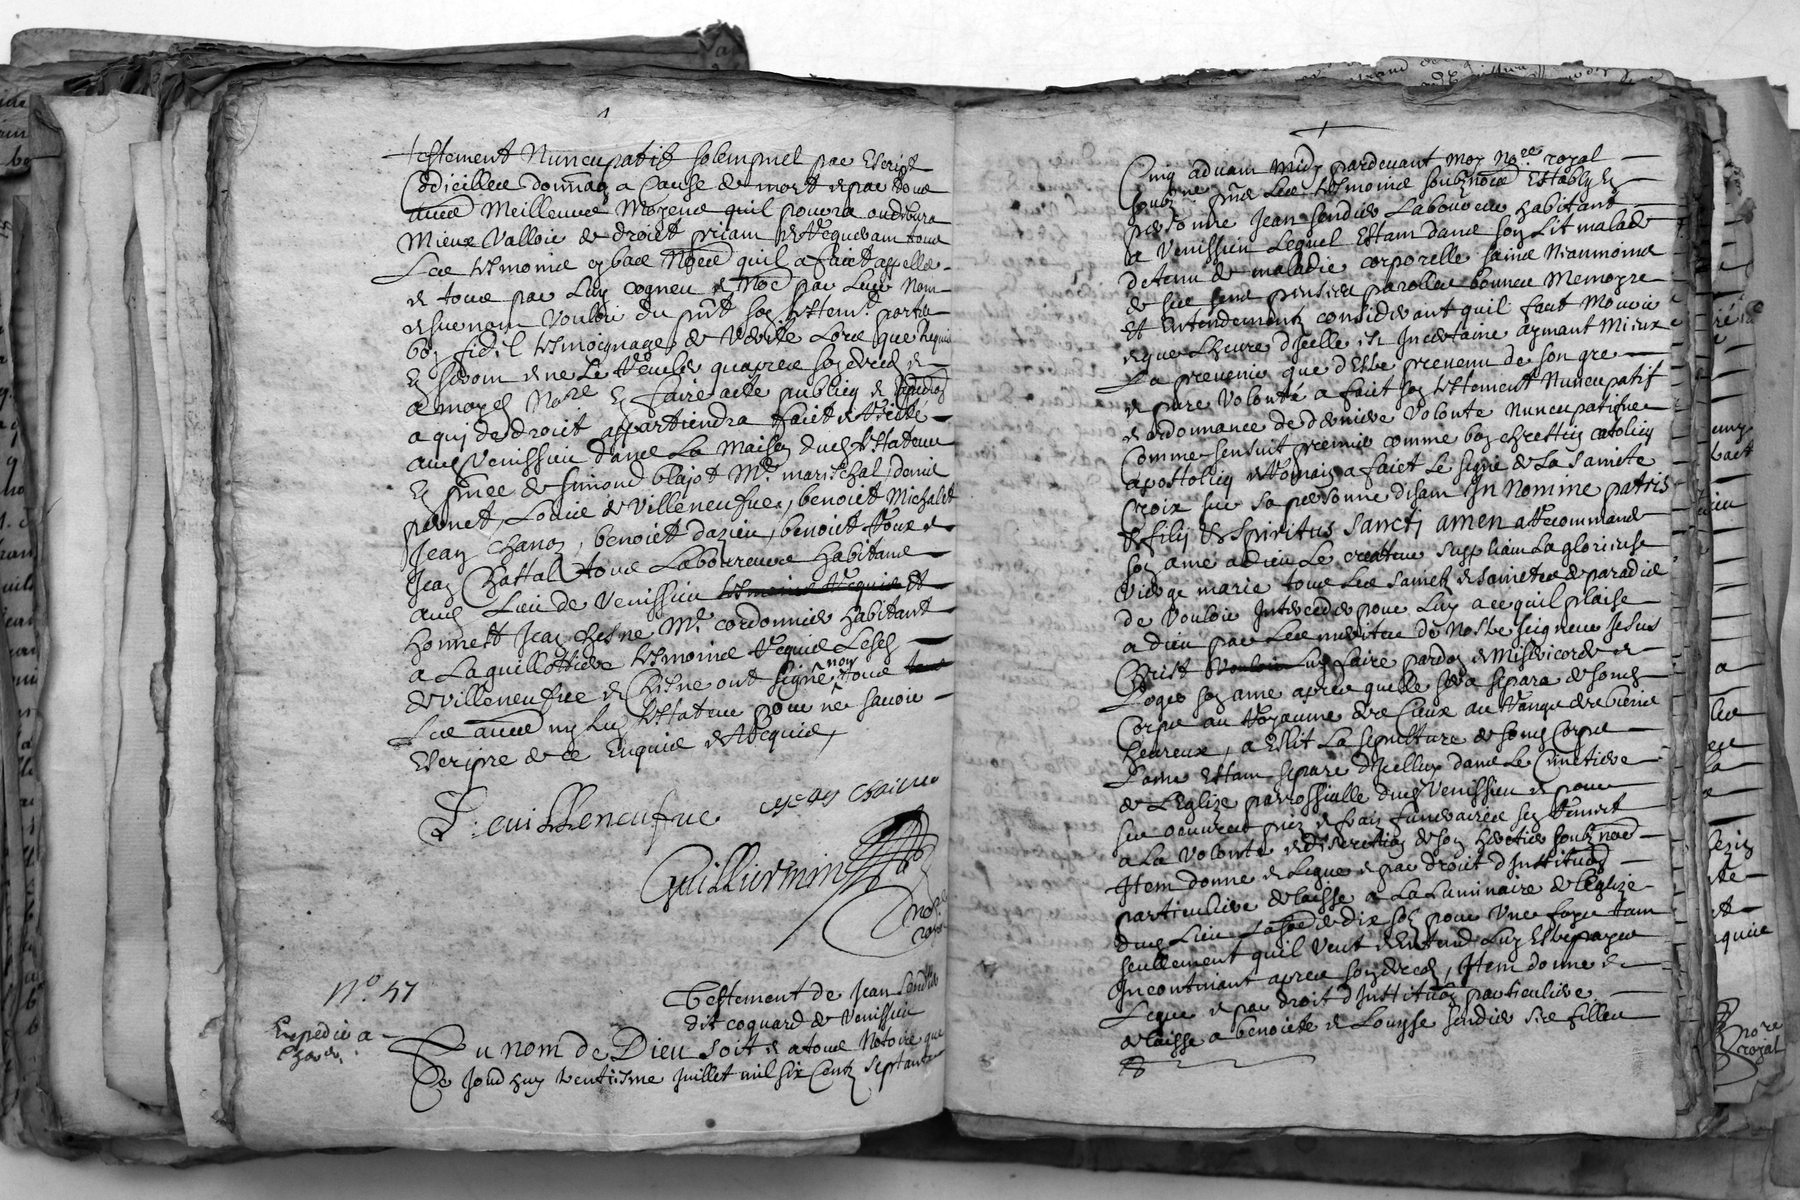 testement Nuncupatif solempnel par Escript
Codicille donnaon a Cause de mort et par toux
autre Meilleure Moyens quil pourra ou debvra
Mieux Valloir de droict priant et Requerant tous
Les tesmoins en bas nommes quil a faict appeller
et tous par Luy cogneu et nommes par Leur Nom
et surnom Vouloir du pnt son testemt porter
bon fidel tesmoignage de Verite Lors que Requis
En seront et ne Le Reveller quapres son deces et
a moyd Nore En faire acte publicq et
a quj de droict appartiendra faict et Recité
aud Venissieu dans La Maison dud testateur
En pnce de simond blajot Me. mareschal, denis
pionet, Louis de Villeneufve, benoict Michalet
Jean Chanon, benoict dazieu, benoict Roux et
Jean Chattal tous Laboureurs habitans
aud Lieu de Venissieu tesmoins Requis et
honnest Jean Chesne Me. cordonnier habitant
a La guillottiere tesmoins Requis Lesd
de Villeneufve et Chesne ont signe non tous
Les autres ny Led testateur pour ne savoir
Escripre de ce Enquis et Requis,
L. de uilleneufue
Jean Chaine
Guilliermin
nore
royal
No. 47
Testement de Jean Sendier
dit coquard de Venissieu
Expedié a
Au nom de Dieu soit et a tous Notoire que
Ce Jourdhuy Ventiesme Juillet mil six Centz septante
Cinq advant Midy pardevant Moy Nore. royal
soubne. pnts Les tesmoins soubznommes Establyt En
personne Jean Sendier Laboureur habitant
a Venissieu Lequel Estam dans son Lit malade
detenu de maladie corporelle sains Neanmoins
de ses sens pensées parolle bonne Memoyre
Et Entendement considerant quil faut Mourir
et que Lheure dJcelle est Incertaine aymant Mieux
La prevenir que dEstre prevenu de son gre
et pure Volonté a fait son testement Nuncupatif
et ordonnance de derniere Volonte nuncupatifve
Comme sensuit premier comme bon chrestien catolicq
apostollicq et Romain a faict Le signe de La saincte
Croix sur sa personne disam In Nomine patris
Et filij Et spiritus sancti amen a Recommande
son ame a dieu Le createur suppliam La glorieuse
Vierge marie tous Les saincts et sainctes de paradis
de Vouloir Interceder pour Luy a ce quil plaise
a dieu par Les merites de Nostre seigneur Jesus
Christ Vouloir Luy faire pardon et Misericorde et
Loger son ame apres quelle sera separa de sond
Corps au Royaume des Cieux au Rangs des biens
heureux, a Eslit La sepulture de sond Corps
Lame Estam separe dJcelluy dans Le Cimetiere
de LEglize parrossialle dud Venissieu et pour
ses oeuvres pies et frais funeraires sen Remet
a La Volonte et discretion de son heritier soubznommé
Item donne et Legue et par droit dInstitution
particuliere delaisse a La Luminaire de lEglize
dud Lieu La somme de dix solz pour Une foys tam
seullement quil Veut et Entend Luy Estre payes
Incontinant apres son deces, Item donne et
Legue et par droit dInstitution particuliere
delaisse a benoicte et Louyse Sendier ses filles